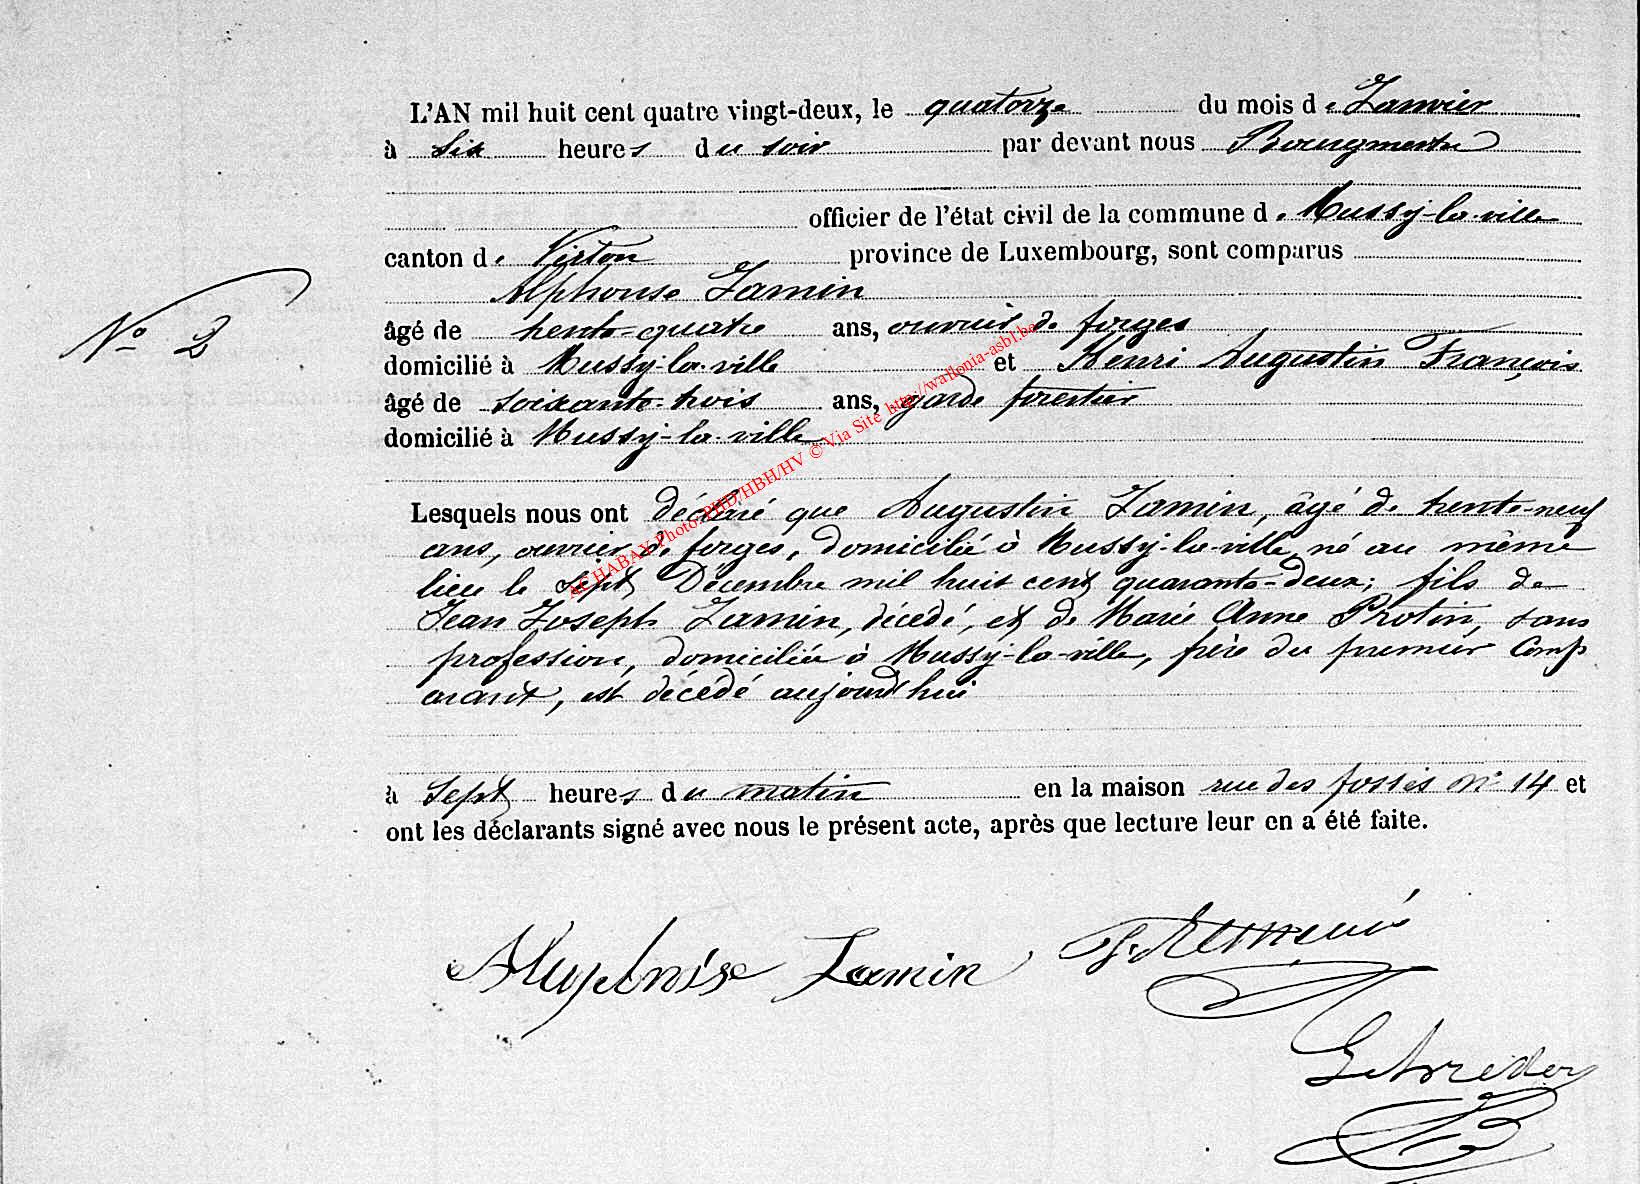 L'AN mil huit cent quatre vingt-deux, le quatorze du mois de Janvier
à Six heures du soir par devant nous Bourgmestre
officier de l'état civil de la commune de Mussy-la-ville
canton de Virton province de Luxembourg, sont comparus
Alphonse Jamin
N° 2
âgé de trente-quatre ans, ouvrier de forges
domicilié à Mussy-la-ville et Henri Augustin François
âgé de soixante-trois ans, garde forestier
domicilié à Mussy-la-ville
Lesquels nous ont déclaré que Augustin Jamin, âgé de trente-neuf
ans, ouvrier de forges, domicilié à Mussy-la-ville, né au même
lieu le sept Décembre mil huit cent quarante-deux; fils de
Jean Joseph Jamin, décédé, et de Marie Anne Protin, sans
profession, domiciliée à Mussy-la-ville, frère du premier Comp
arant, est décédé aujourd'hui
à Sept heures du matin en la maison rue des fossés n° 14 et
ont les déclarants signé avec nous le présent acte, après que lecture leur en a été faite.
Jamin
ACHABAY Photo: PHD/HBH/HV © Via Site http://wallonia-asbl.be